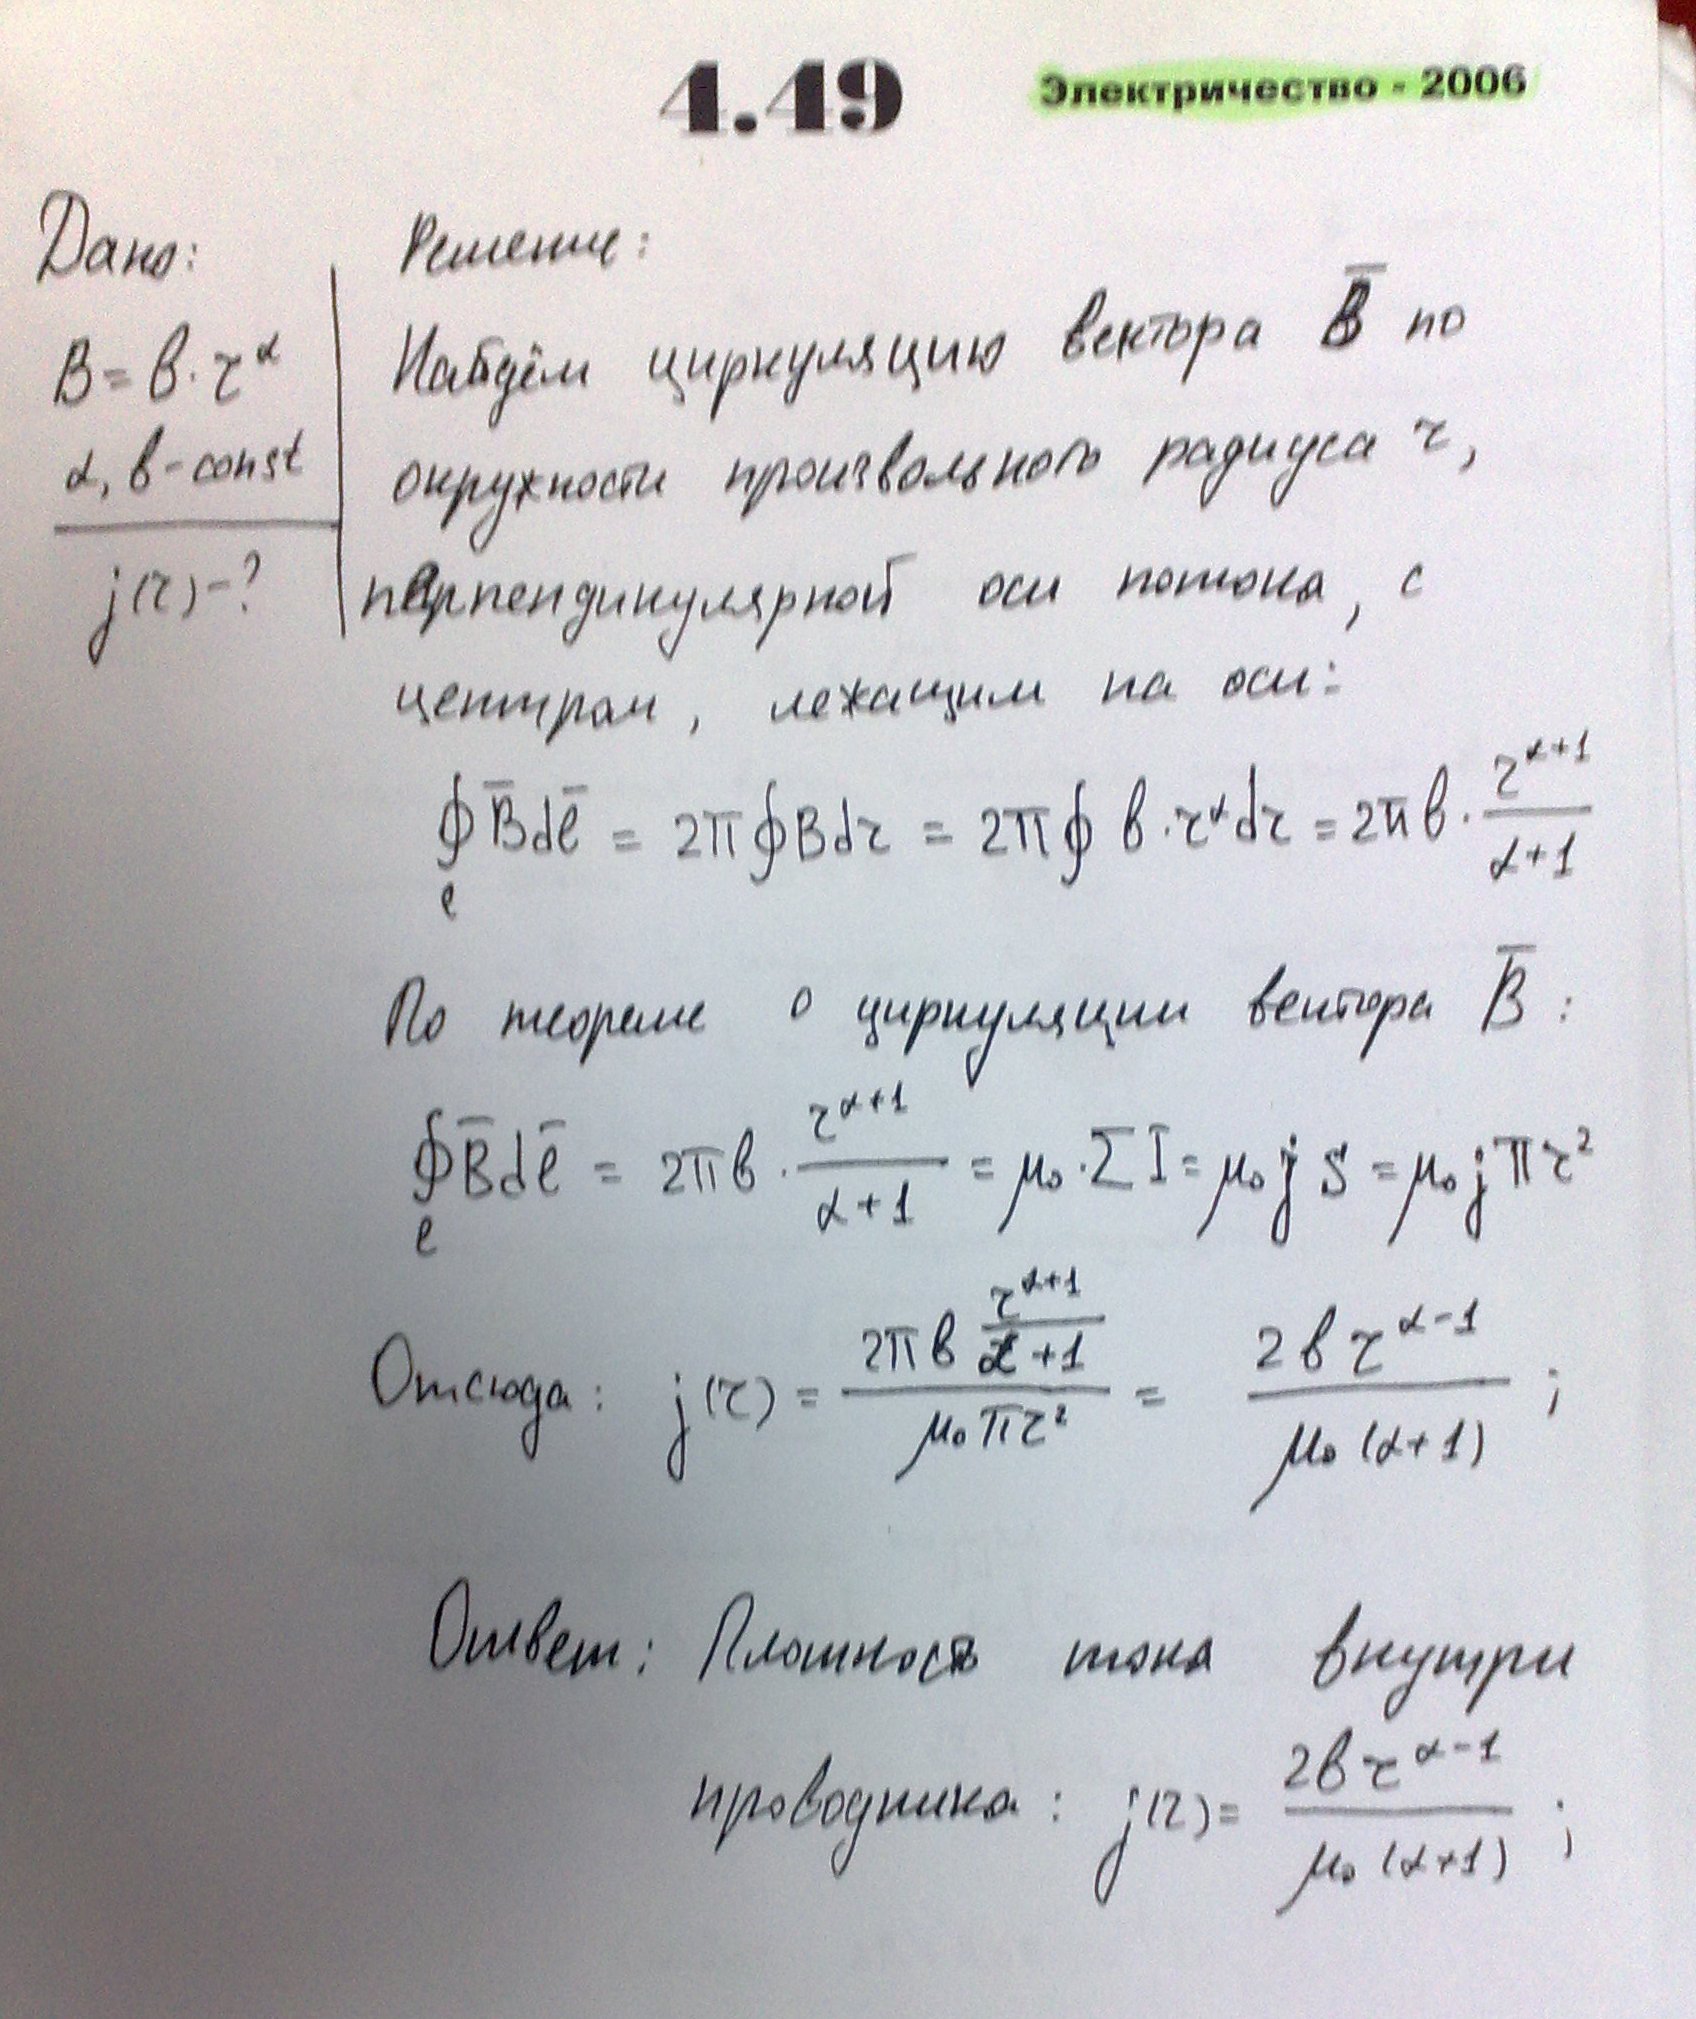 4.49
Электричество - 2006
Дано:
B = b · r^α
α, b - const
j(r) - ?
Решение:
Найдём циркуляцию вектора B̅ по
окружности произвольного радиуса r,
перпендикулярной оси потока, с
центром, лежащим на оси:
∮_ℓ B̅dℓ̅ = 2π∮Bdr = 2π∮ b · r^α dr = 2πb · r^(α+1)/(α+1)
По теореме о циркуляции вектора B̅ :
∮_ℓ B̅dℓ̅ = 2πb · r^(α+1)/(α+1) = μ₀ · ΣI = μ₀ j S = μ₀ j π r²
Отсюда: j(r) = (2πb r^(α+1)/(α+1))/(μ₀ π r²) = 2b r^(α-1)/(μ₀ (α+1)) ;
Ответ: Плотность тока внутри
проводника : j(r) = 2b r^(α-1)/(μ₀ (α+1)) ;